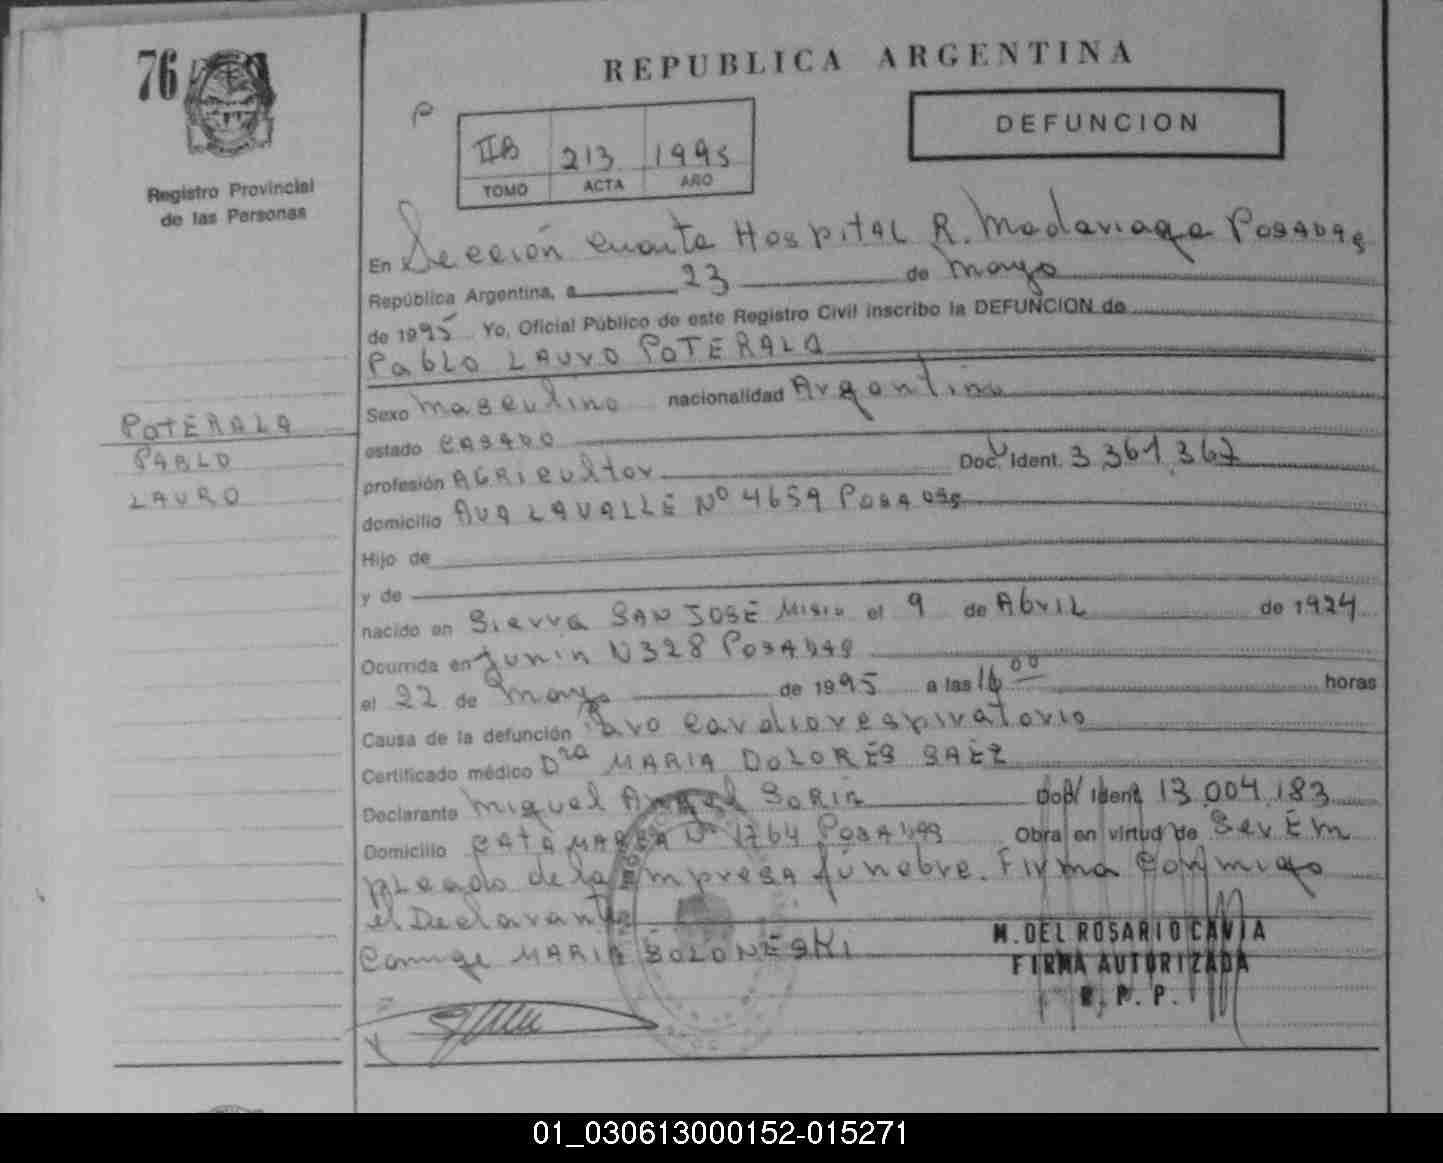 76
REPUBLICA ARGENTINA
DEFUNCION
IIB 213 1995
TOMO ACTA AÑO
Registro Provincial
de las Personas
POTERALA
PABLO
LAURO
En Sección Cuarta HOSPITAL R. Madariaga POSADAS
República Argentina, a 23 de mayo
de 1995 Yo, Oficial Público de este Registro Civil inscribo la DEFUNCION de
Pablo LAURO POTERALA
Sexo masculino nacionalidad Argentino
estado CASADO
profesión AGRicultor Doc. Ident. 3.361.367
domicilio AVA LAVALLE Nº 4659 POSADAS
Hijo de
y de
nacido en Sierra SAN JOSÉ Misio el 9 de AbriL de 1924
Ocurrida en Junin N328 POSADAS
el 22 de mayo de 1995 a las 16 00 horas
Causa de la defunción Paro cardiorespiratorio
Certificado médico Dra MARIA DOLORES SAEZ
Declarante Miguel Angel Doc. Ident 13.004.183
Domicilio CATAMARCA Nº 1764 POSADAS Obra en virtud de Ser Em
pLeado de la Empresa fúnebre. Firma Conmigo
el Declarante
Conuge MARIA BOLONESKI
M. DEL ROSARIO CAVIA
FIRMA AUTORIZADA
R. P. P.
01_030613000152-015271